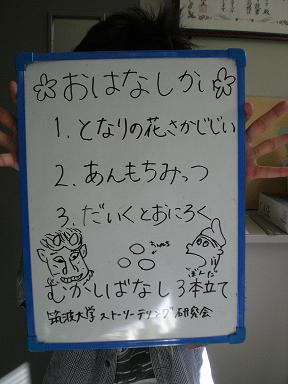 おはなしかい
1. となりの花さかじじい
2. あんもちみっつ
3. だいくとおにろく
むかしばなし 3本立て
筑波大学ストーリーテリング研究会